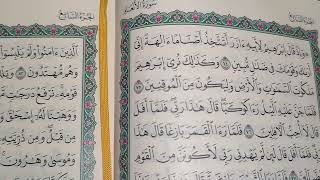 الجزء السابع
سورة الأنعام
وَإِذْ قَالَ إِبْرَٰهِيمُ لِأَبِيهِ ءَازَرَ أَتَتَّخِذُ أَصْنَامًا ءَالِهَةً إِنِّىٓ
أَرَىٰكَ وَقَوْمَكَ فِى ضَلَٰلٍ مُّبِينٍ ٧٤ وَكَذَٰلِكَ نُرِىٓ إِبْرَٰهِيمَ
مَلَكُوتَ ٱلسَّمَٰوَٰتِ وَٱلْأَرْضِ وَلِيَكُونَ مِنَ ٱلْمُوقِنِينَ ٧٥
فَلَمَّا جَنَّ عَلَيْهِ ٱلَّيْلُ رَءَا كَوْكَبًا قَالَ هَٰذَا رَبِّى فَلَمَّآ أَفَلَ
قَالَ لَآ أُحِبُّ ٱلْءَافِلِينَ ٧٦ فَلَمَّا رَءَا ٱلْقَمَرَ بَازِغًا قَالَ هَٰذَا رَبِّى
فَلَمَّآ أَفَلَ قَالَ لَئِن لَّمْ يَهْدِنِى رَبِّى لَأَكُونَنَّ مِنَ ٱلْقَوْمِ
الجزء السابع
ٱلَّذِينَ ءَامَنُوا۟ وَلَمْ يَلْبِسُوٓا۟
وَهُم مُّهْتَدُونَ ٨٢
قَوْمِهِۦ نَرْفَعُ دَرَجَٰتٍ
وَوَهَبْنَا لَهُۥٓ إِسْحَٰقَ
مِن قَبْلُ وَمِن ذُرِّيَّتِهِۦ
وَمُوسَىٰ وَهَٰرُونَ